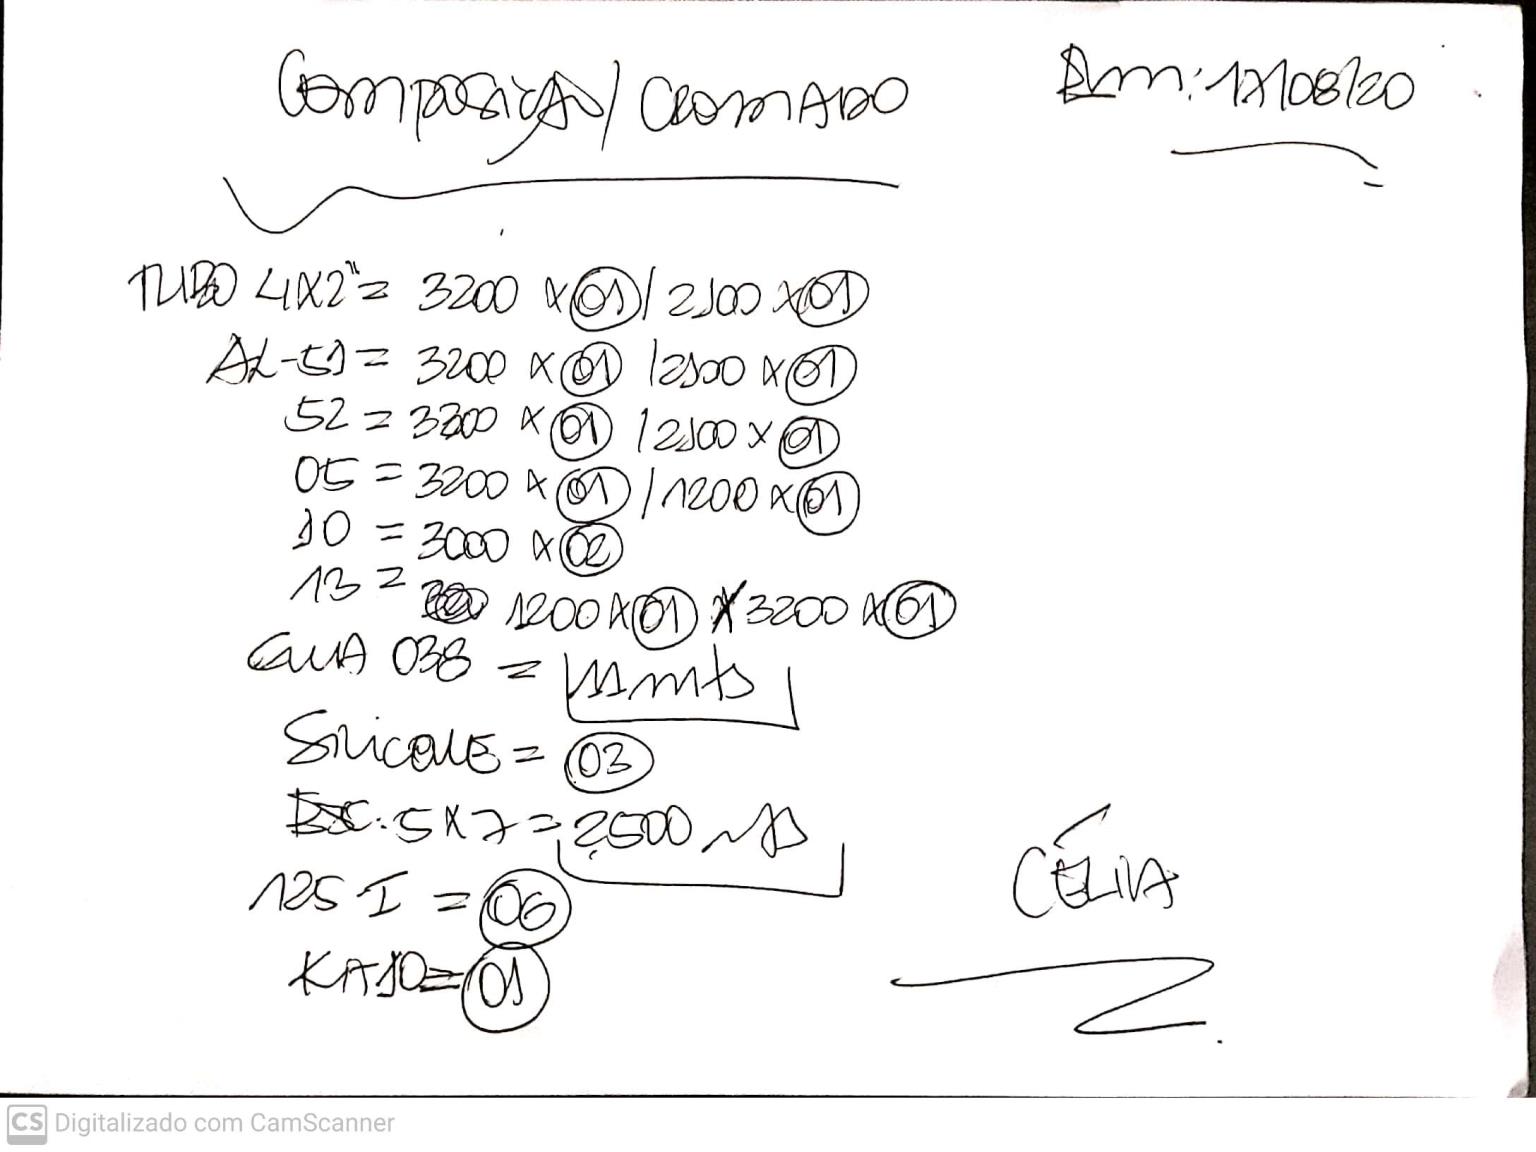 COMPOSIÇÃO/ CROMADO
Em: 17/08/20
TUBO 4X2"= 3200 x 01 / 2100 x 01
AL-51 = 3200 x 01 / 2100 x 01
52 = 3200 x 01 / 2100 x 01
05 = 3200 x 01 / 1200 x 01
10 = 3000 x 02
13 = 1200 x 01 x 3200 x 01
GUIA 038 = 11 mts
SILICONE = 03
5X7 = 2,500 mts
125 I = 06
KA10= 01
CÉLIA
CS Digitalizado com CamScanner